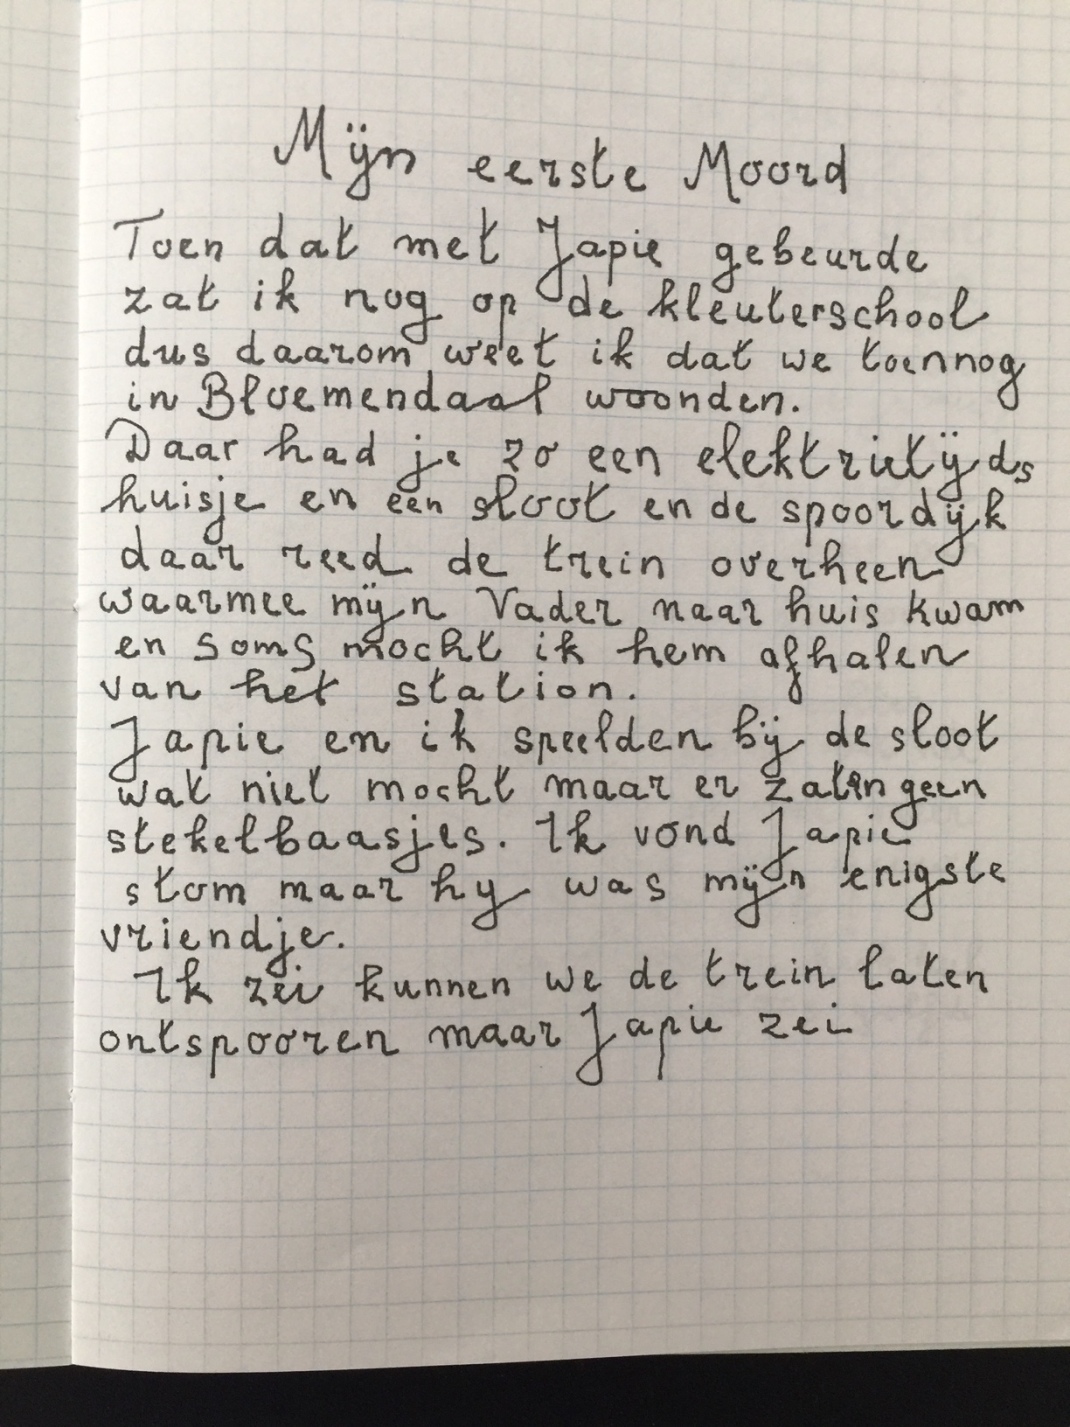 Mijn eerste Moord
Toen dat met Japie gebeurde
zat ik nog op de kleuterschool
dus daarom weet ik dat we toennog
in Bloemendaal woonden.
Daar had je zo een elektrietijds
huisje en een sloot en de spoordijk
daar reed de trein overheen
waarmee mijn Vader naar huis kwam
en soms mocht ik hem afhalen
van het station.
Japie en ik speelden bij de sloot
wat niet mocht maar er zaten geen
stekelbaasjes. Ik vond Japie
stom maar hy was mijn enigste
vriendje.
Ik zei kunnen we de trein laten
ontspooren maar Japie zei